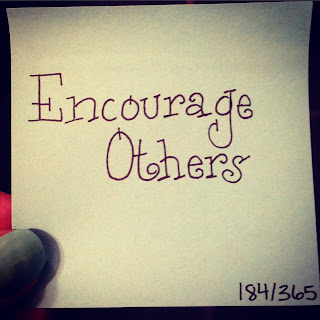 Encourage
Others
184/365